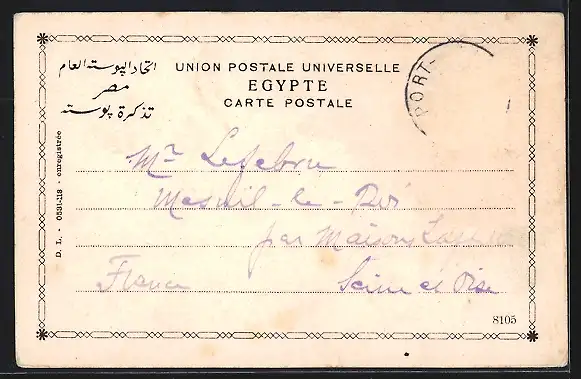 اتحاد البوسته العام
مصر
تذكرة بوسته
UNION POSTALE UNIVERSELLE
EGYPTE
CARTE POSTALE
PORT-
D. L. - 0531-118 - enregistrée
Mr Lefebvre
Mesnil-le-Roi
par Maisons Laf
France
Seine et Oise
8105